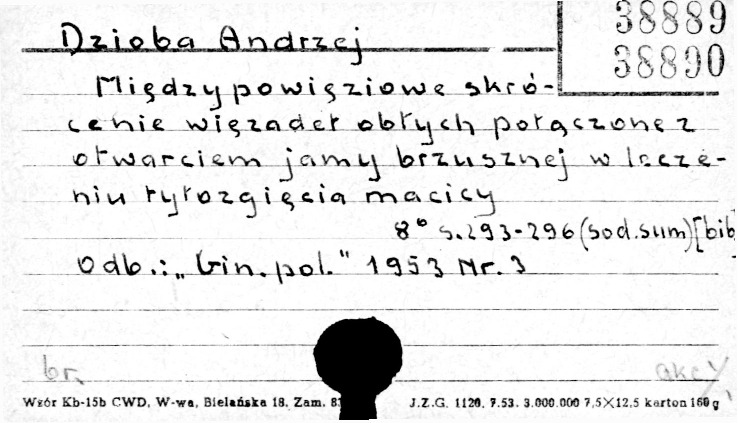 38889
38890
Dzioba Andrzej
Międzypowięziowe skró-
cenie więzadeł obłych połączone z
otwarciem jamy brzusznej w lecze-
niu tyłozgięcia macicy
8° s.293-296 (sod.sum) [bib
Odb.: „Gin. pol." 1953 Nr. 3
br. akcy
Wzór Kb-15b CWD, W-wa, Bielańska 18. Zam. 8 J.Z.G. 1120. 7.53. 3.000.000 7,5×12,5 karton 160 g